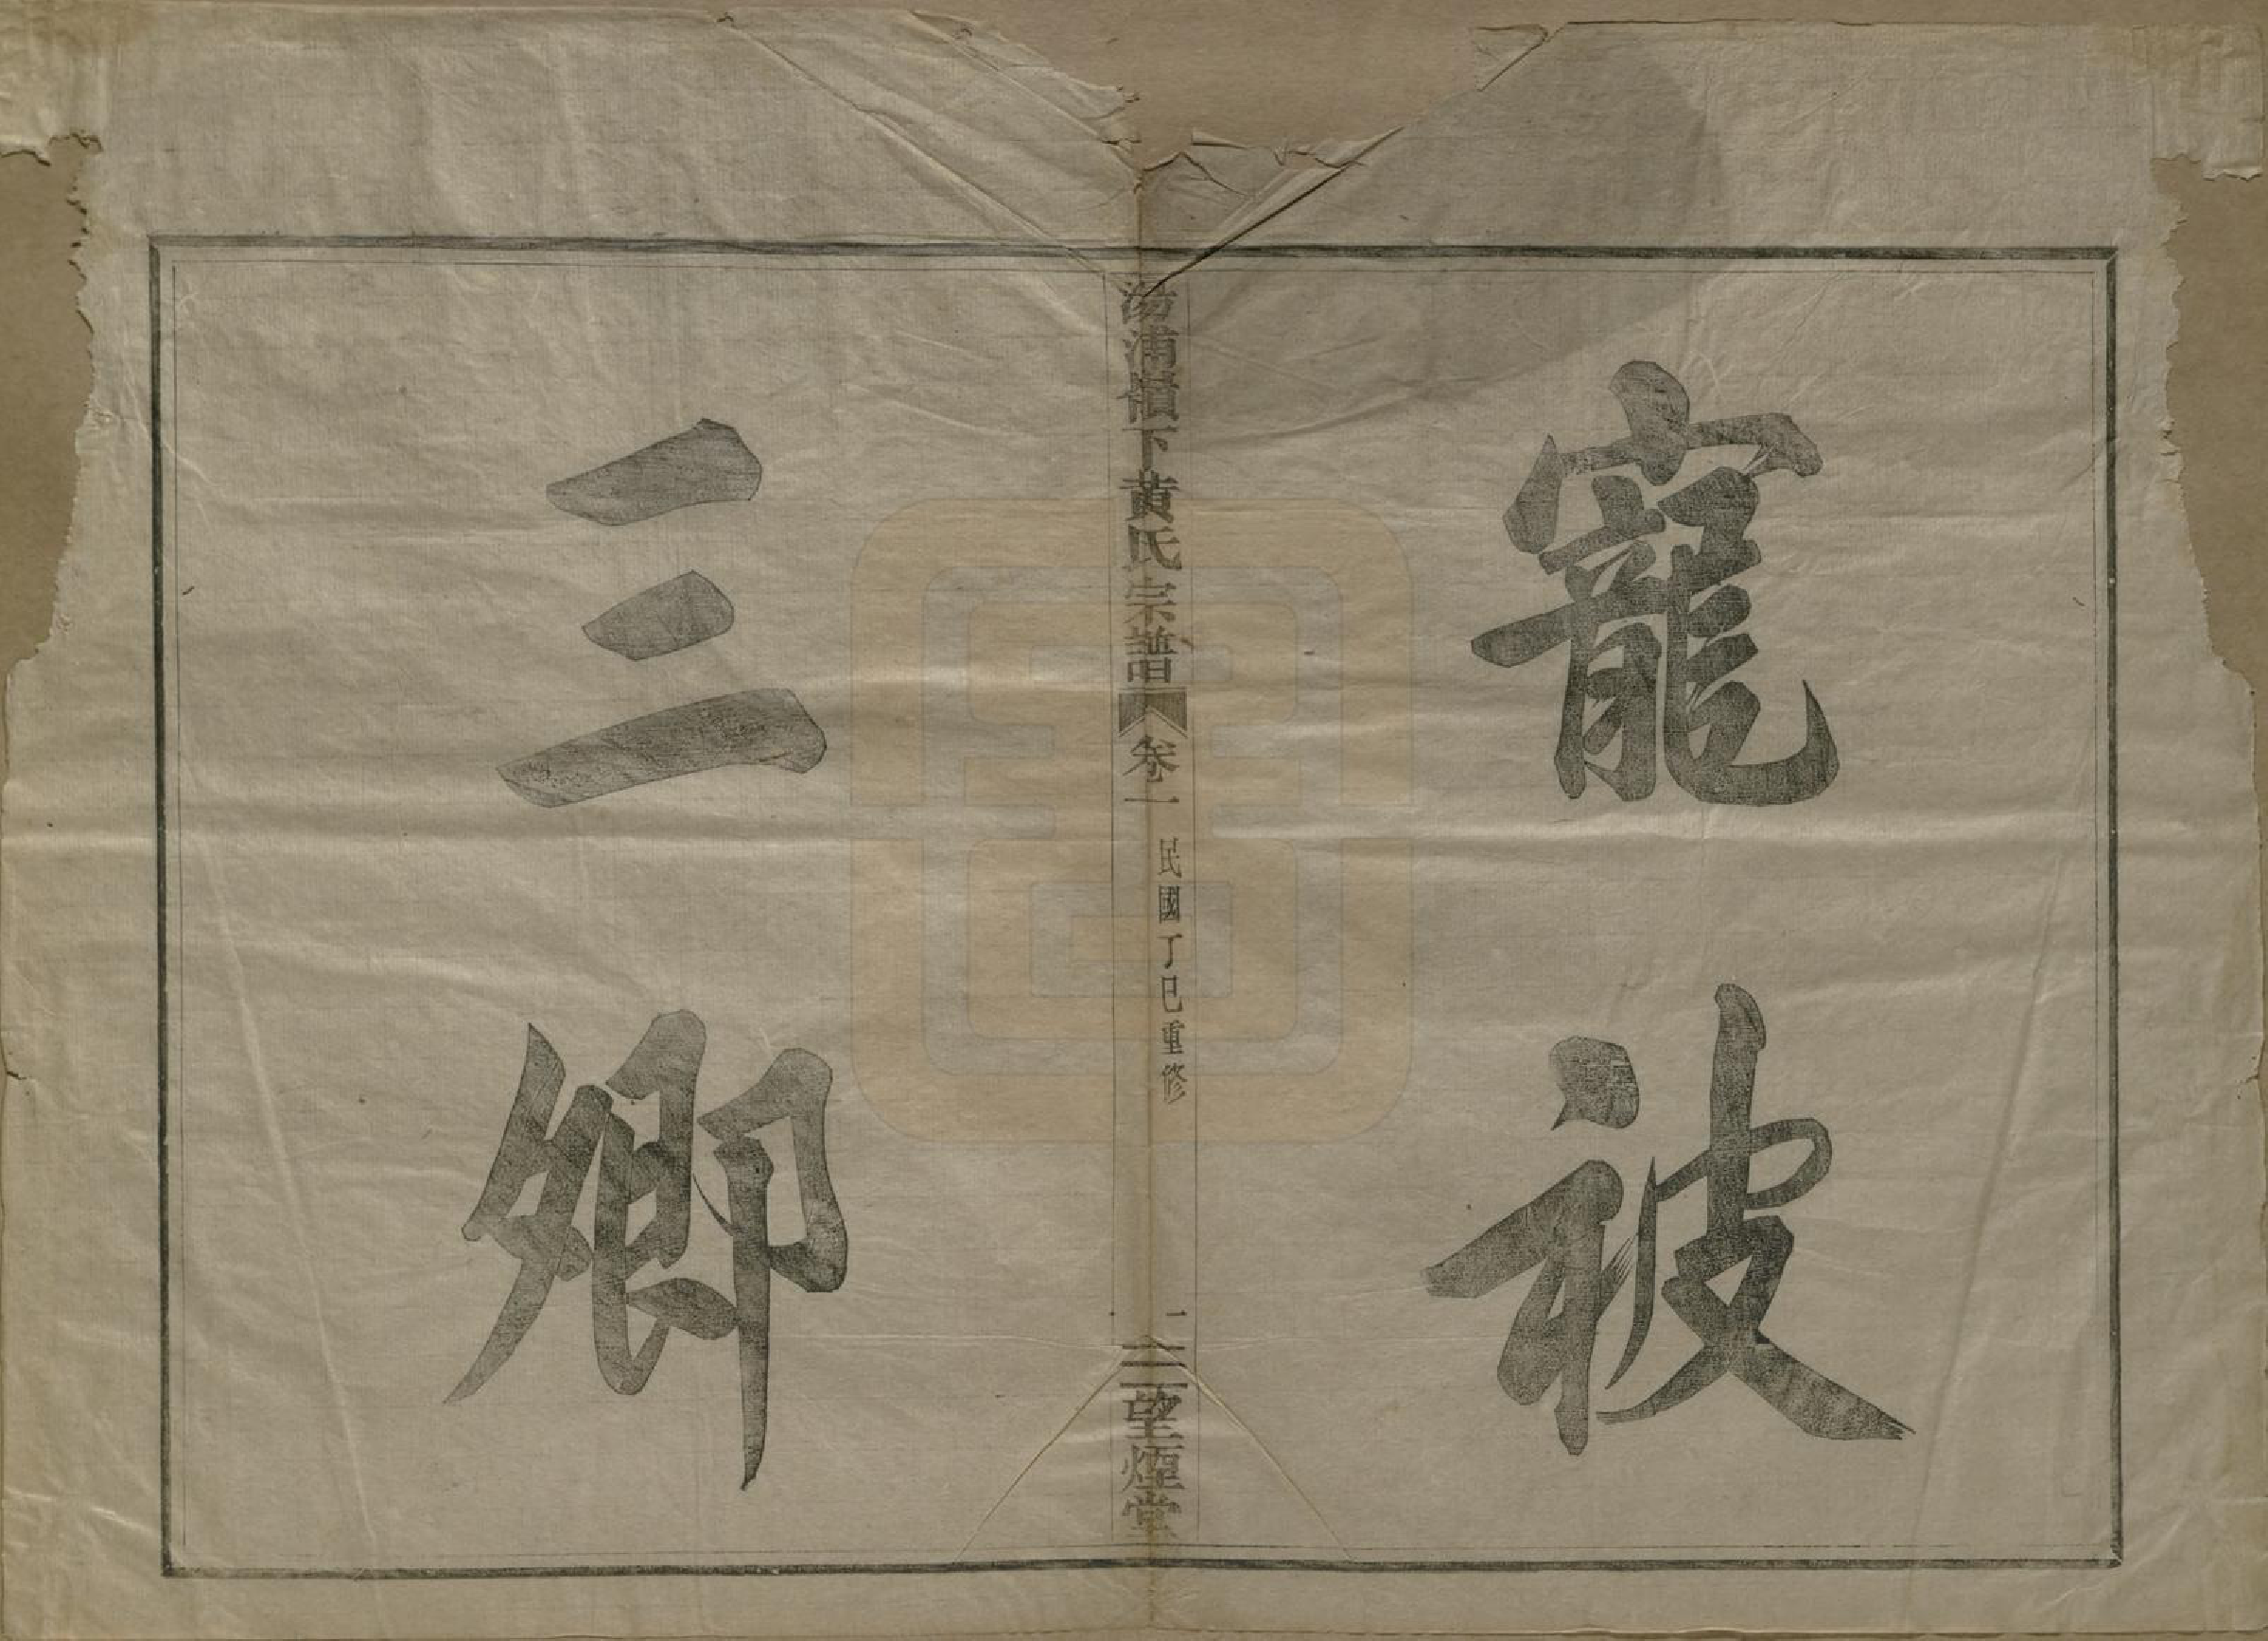 寵被
湯浦嶺下黄氏宗譜 卷一
民國丁巳重修
一
三望煙堂
三卿